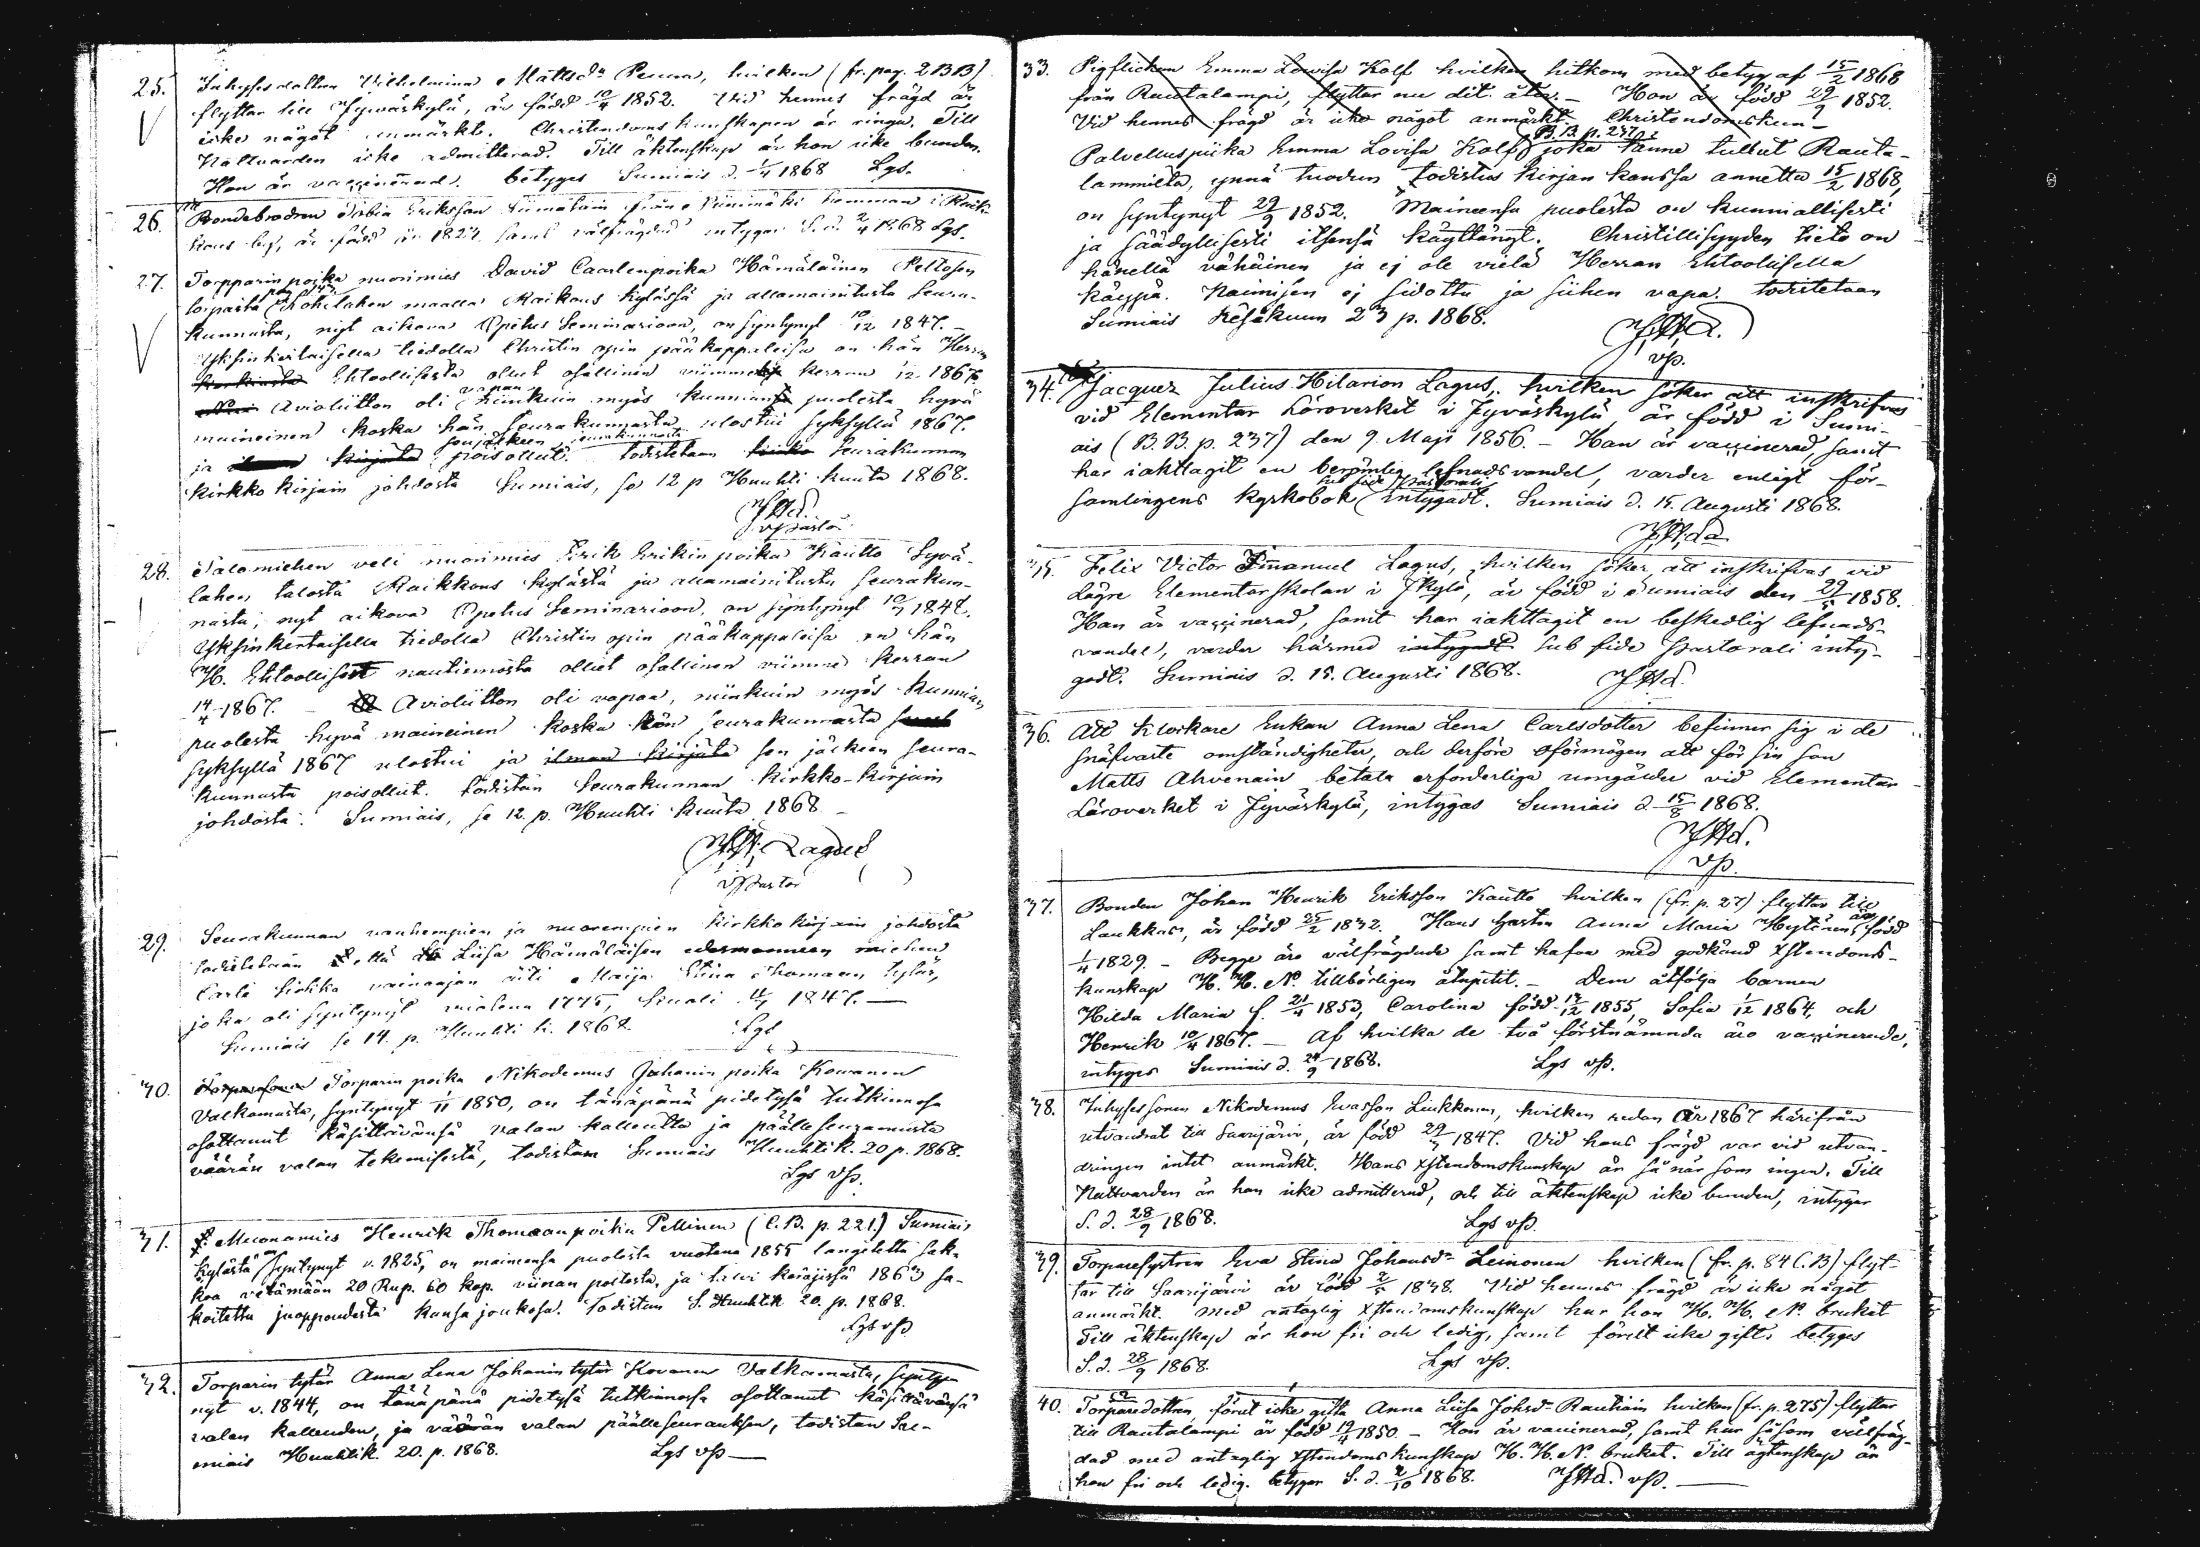 25. Inhyses dottren Vilhelmina Mattsdr Penna, hvilken (fr. pag. 213 B)
flyttar till Jyväskylä, är född 10/4 1852. Vid hennes frägd är
icke något anmärkt. Christendoms kunskapen är ringa. Till
Nattvarden icke admitterad. Till äktenskap är hon icke bunden.
Hon är vaccinerad. betyges Sumiais d. 1/4 1868 Lgs.
26. Bondebrodren Eriksson från hemman i
by, är född år 1827 samt välfrägdad intygar S. d. 2/4 1868 Lgs.
27. Torpparin poika nuorimies David Caarlenpoika Hämäläinen Peltosen
torpasta maalla Raikaus kylässä ja allamainitusta seura-
kunnasta, nyt aikova Opetus Seminarioon, on syntynyt 10/12 1847. –
Yksinkertaisella tiedolla Christin opin pääkappaleisa on hän Herran
Ehtoollisesta ollut osallinen viimme kerran 1867
Avioliitton oli vapaa niinkuin myös kunnian puolesta hyvä
maineinen koska hän seurakunnasta ulostui syksyllä 1867.
ja sen jälkeen seurakunnasta poisollut. todistetaan seurakunnan
kirkko kirjain johdosta Sumiais, se 12 p Huuhti kuuta 1868.
28. Talomiehen veli nuorimies Erik Erikin poika Kautto Syvä-
lahen talosta Raikkaus kylästä ja allamainitusta seurakun-
nasta; nyt aikova Opetus Seminarioon, on syntynyt 10/7 1848.
Yksinkertaisella tiedolla Christin opin pääkappaleisa on hän
H. Ehtoollisest nautiemosta ollut osallinen viimme kerran
14/4 1867. – Avioliitton oli vapaa, niinkuin myös kunnian
puolesta hyvä maineinen koska hän seurakunnasta
syksyllä 1867 ulostui ja ilman kirjata sen jälkeen seura-
kunnasta poisollut. todistan seurakunnan kirkko-kirjain
johdosta. Sumiais, se 12. p. Huuhti kuuta 1868 –
Lagus
v Pastor
29. Seurakunnan vanhempien ja nuorempien kirkko kirjain johdosta
todistetaan että Liisa Hämäläisen miehen
Carle Sirkka vainaajan äiti Maija Stina Thomaan tytär,
joka oli syntynyt vuotena 1775, kuoli 1847. –
Sumiais se 14. p. Huuhti k. 1868. Lgs
30. Torparin poika Nikodemus Johanin poika Kovanen
Valkamasta, syntynyt 1/11 1850, on tänäpänä pidetysä tutkinnosa
osottanut käsittävänsä valan kalleutta ja päälleseuraamista
väärän valan tekemisestä, todistan Sumiais Huuhtik. 20 p. 1868.
Lgs vp.
31. Muonamies Henrik Thomaanpoika Pellinen (C.B. p. 221.) Sumiais
kylästä, syntynyt v. 1825, on maineensa puolesta vuotena 1855 langitettu sak-
koa vetämään 20 Rup. 60 kop. viinan poltosta, ja talvi käräjissä 1863 sa-
koitettu juoppoudesta kansa joukosa. Todistan S. Huuhtik 20. p. 1868.
Lgs vp
32. Torparin tytär Anna Lena Johanin tytär Kovanen Valkamasta, synty-
nyt v. 1844, on tänäpänä pidetysä tutkinnossa osottanut käsitävänsä
valan kalleuden, ja väärän valan päälleseurauksen, todistan Su-
miais Huuhtik. 20. p. 1868. Lgs vp –
33. Pigflickan Emma Lovisa Kolf hvilken hitkom med betyg af 15/2 1868
från Rautalampi, flyttar nu dit åter. – Hon är född 29/9 1852.
Vid hennes frägd är icke något anmärkt. Christendomskun-
Palvelluspiika Emma Lovisa Kolf (B.B. p. 237) joka tänne tullut Rauta-
lammilta, ynnä tuodun todistus kirjan kanssa annettu 15/2 1868,
on syntynyt 29/9 1852. Maineensa puolesta on kunniallisesti
ja säädyllisesti itsensä käyttänyt. Christillisyyden tieto on
hänellä vähäinen ja ej ole vielä Herran Ehtoolisella
käynnä. Naimisen ej sidottu ja siihen vapa. todistetaan
Sumiais Kesäkuun 23 p. 1868.
vp.
34. Jacques Julius Hilarion Lagus, hvilken söker att inskrifvas
vid Elementar Läroverket i Jyväskylä är född i Sumi-
ais (B.B. p. 237) den 9. Maji 1856. – Han är vaccinerad, samt
har iakttagit en berömlig lefnads vandel, varder enligt för-
samlingens kyrkobok sub fide pastorali intygadt. Sumiais d. 15. Augusti 1868.
35. Felix Victor Emanuel Lagus, hvilken söker att inskrifvas vid
Lägre Elementarskolan i Jkylä, är född i Sumiais den 29/5 1858.
Han är vaccinerad, samt har iakttagit en beskedlig lefnads-
vandel, varder härmed intygadt sub fide pastorali inty-
gadt. Sumiais d. 15. Augusti 1868.
36. Att Klockare Enkan Anna Lena Carlsdotter befinner sig i de
snäfvaste omständigheter, och derföre oförmögen att för sin son
Matts Ahvenain betala erforderliga umgälder vid Elementar
Läroverket i Jyväskylä, intygas Sumiais d. 15/8 1868.
vp.
37. Bonden Johan Henrik Eriksson Kautto hvilken (fr. p. 27) flyttar till
Laukkas, är född 25/2 1832. Hans hustru Anna Maria Hytönen är född
1/4 1829. – Begge äro välfrägdade samt hafva med godkänd Xstendoms-
kunskap H. H. N. tillbörligen åtnjutit. – Dem åtfölja barnen
Hilda Maria f. 21/4 1853, Carolina född 13/12 1855, Sofia 1/12 1864, och
Henrik 10/4 1867. – Af hvilka de två förstnämnda äro vaccinerade,
intyges Sumiais d. 24/9 1868. Lgs vp.
38. Inhyses sonen Nikodemus Evasson Liukkonen, hvilken redan år 1867 härifrån
utvandrat till Saarijärvi, är född 29/3 1847. Vid hans frägd var vid utvan-
dringen intet anmärkt. Hans Xstendomskunskap är så när som ingen. Till
Nattvarden är han icke admitterad, och till äktenskap icke bunden, intygar
S. d. 28/9 1868. Lgs vp.
39. Torparesystren Eva Stina Johansdr Leinonen hvilken (fr. p. 84 C.B) flyt-
tar till Saarijärvi är född 2/5 1838. Vid hennes frägd är icke något
anmärkt. Med antaglig Xstendomskunskap har hon H. H. N. brukat
Till äktenskap är hon fri och ledig, samt förut icke gift, betyges
S. d. 28/9 1868. Lgs vp.
40. Torparedottren, förut icke gifta Anna Liisa Johsdr Rautiain hvilken (fr. p. 275) flyttar
till Rautalampi är född 19/4 1850. – Hon är vaccinerad, samt har såsom välfräg-
dad med antaglig Xstendomskunskap H. H. N. brukat. Till ägtenskap är
hon fri och ledig. betygar S. d. 2/10 1868. vp. –